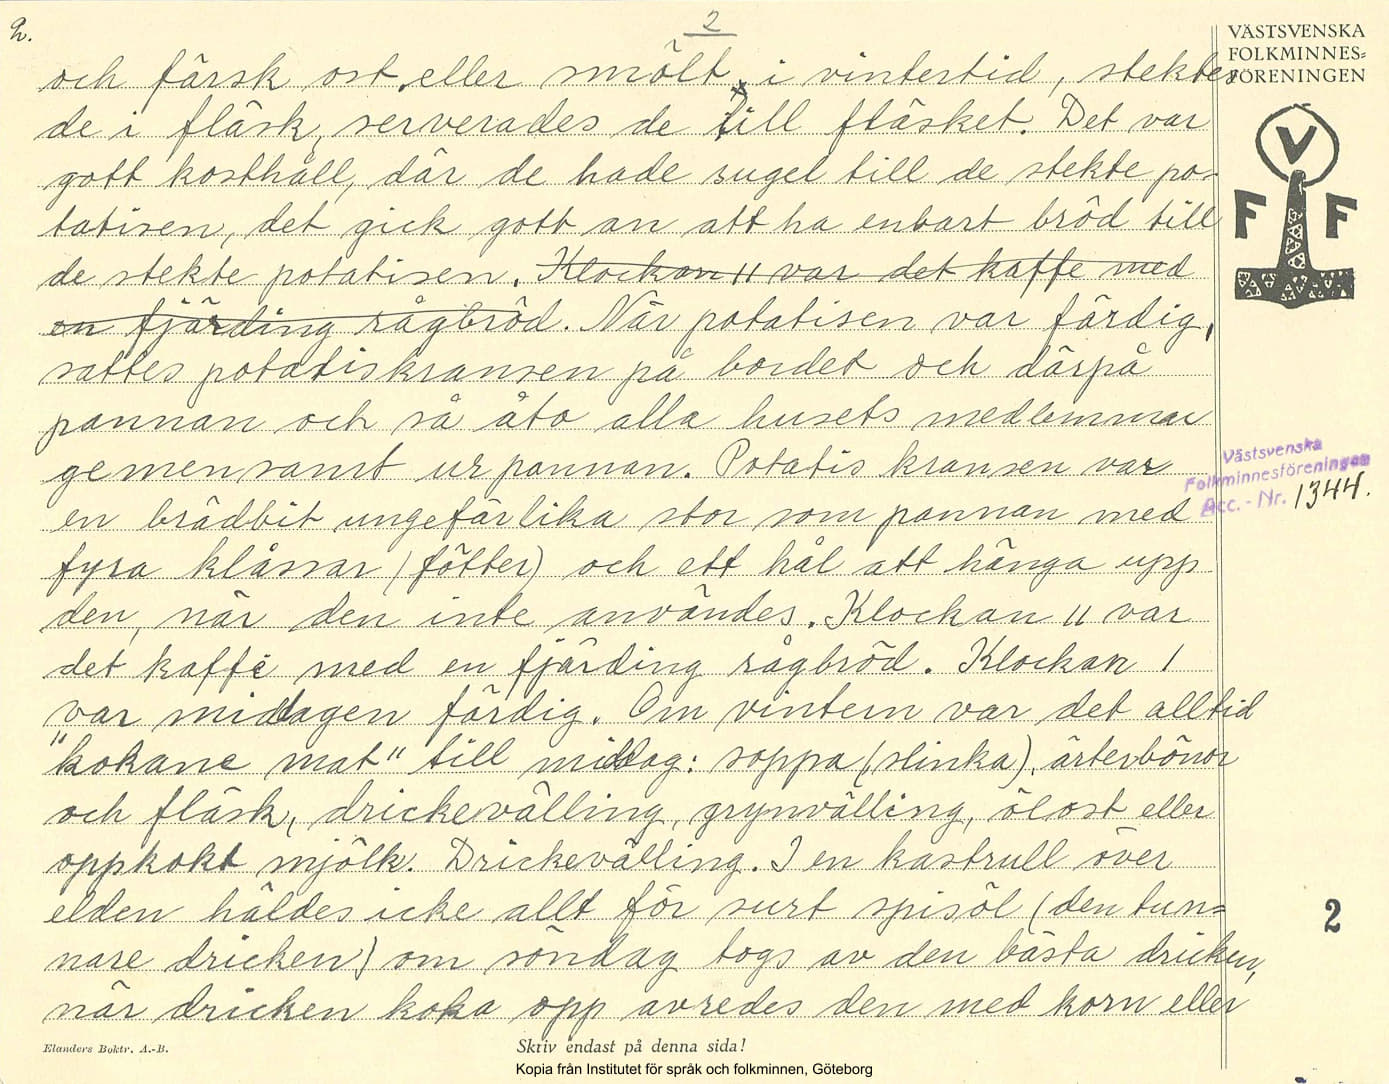 2.
2
VÄSTSVENSKA
FOLKMINNES-
FÖRENINGEN
och färsk ost eller smölt, i vintertid, stektes
de i fläsk, serverades de till fläsket. Det var
gott kosthåll, där de hade sugel till de stekte po-
tatisen, det gick gott an att ha enbart bröd till
de stekte potatisen. Klockan 11 var det kaffe med
en fjärding rågbröd. När potatisen var färdig,
sattes potatiskransen på bordet och därpå
pannan och så åto alla husets medlemmar
gemensamt ur pannan. Potatis kransen var
en brädbit ungefär lika stor som pannan med
fyra klåssar (fötter) och ett hål att hänga upp
den, när den inte användes. Klockan 11 var
det kaffe med en fjärding rågbröd. Klockan 1
var middagen färdig. Om vintern var det alltid
"kokane mat" till middag: soppa (slinka), ärterbönor
och fläsk, drickevälling, grynvälling, ölost eller
oppkokt mjölk. Drickevälling. I en kastrull över
elden häldes icke allt för surt spisöl (den tun-
nare dricken) om söndag togs av den bästa dricken,
när dricken koka opp avredes den med korn eller
V
F F
Västsvenska
Folkminnesföreningen
Acc.-Nr. 1344.
2
Elanders Boktr. A.-B.
Skriv endast på denna sida!
Kopia från Institutet för språk och folkminnen, Göteborg